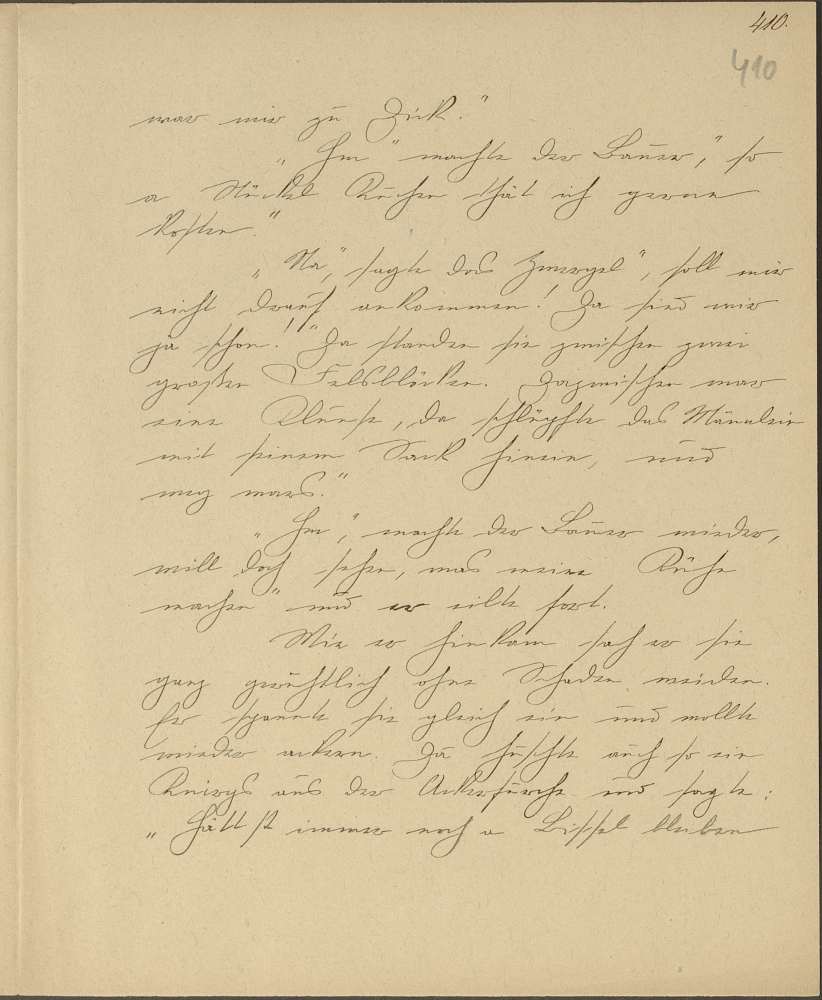 410.
410
war mir zu dick."
„Hm" machte der Bauer, „so
a Stückel Kuchen thät ich gerne
kosten."
„Na", sagte das Zwergel", soll mir
nicht drauf ankommen! Da sind wir
ja schon!" Da standen sie zwischen zwei
großen Felsblöcken. Dazwischen war
eine Klunse, da schlüpfte das Männlein
mit seinem Sack hinein, und
weg wars."
„Hm", machte der Bauer wieder,
will doch sehen, was meine Kühe
machen" und er eilte fort.
Wie er hinkam sah er sie
ganz gemühtlich ohne Schaden weiden.
Er spannte sie gleich ein und wollte
wieder ackern. Da huschte auch so ein
Knirps aus der Ackerfurche und sagte:
„Hättst immer noch a Bissel bleiben